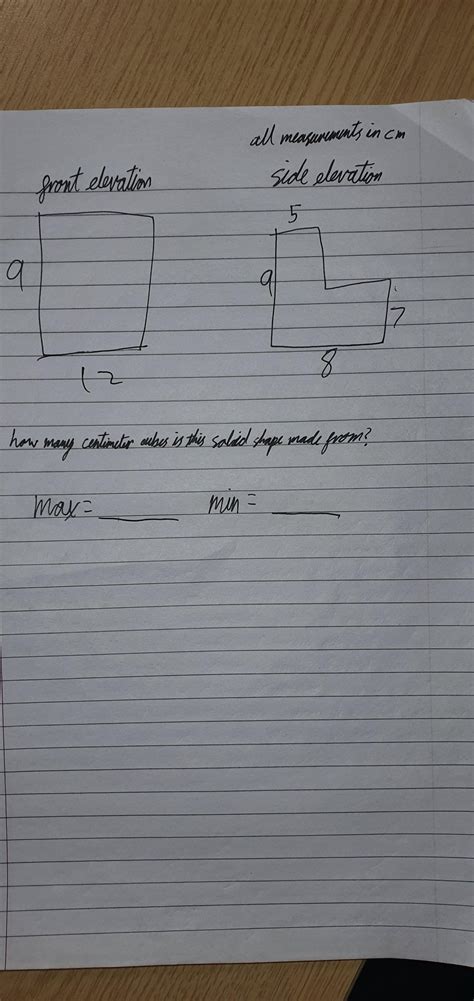 all measurements in cm
front elevation
side elevation
5
9
9
7
12
8
how many centimeter cubes is this solid shape made from?
max = ____
min = ____